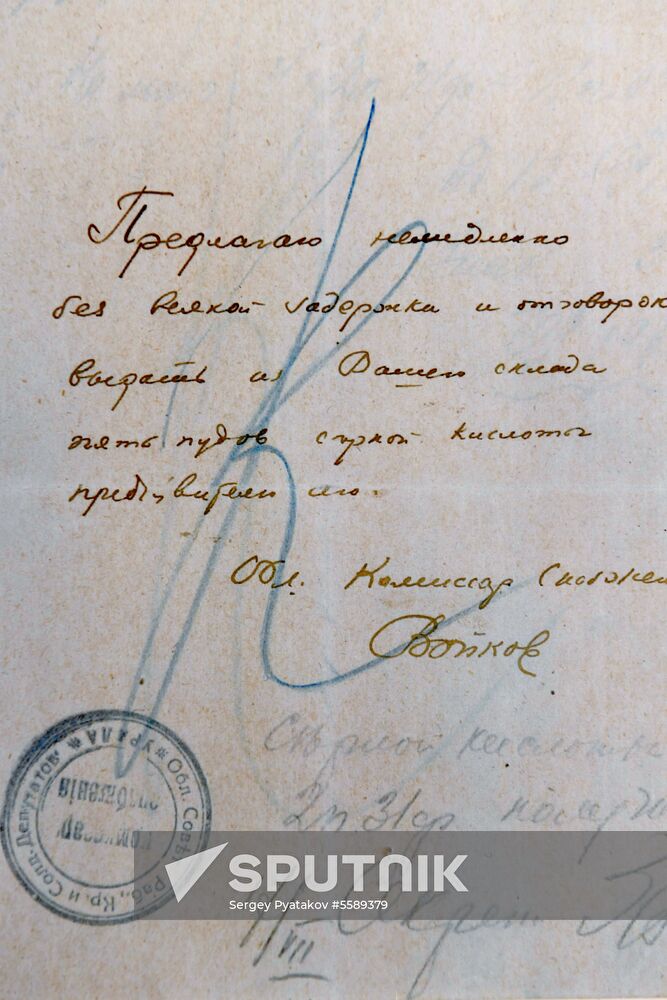 Предлагаю немедленно
без всякой задержки и отговорок
выдать из Вашего склада
пять пудов серной кислоты
предъявителю сего.
Обл. Комиссар Снабжен
Войков
Серной кислоты
2 п 31 ф
VII
Обл. Совѣ Раб., Кр. и Солд. Депутатовъ УРАЛА
комиссар
снабженія
SPUTNIK
Sergey Pyatakov #5589379